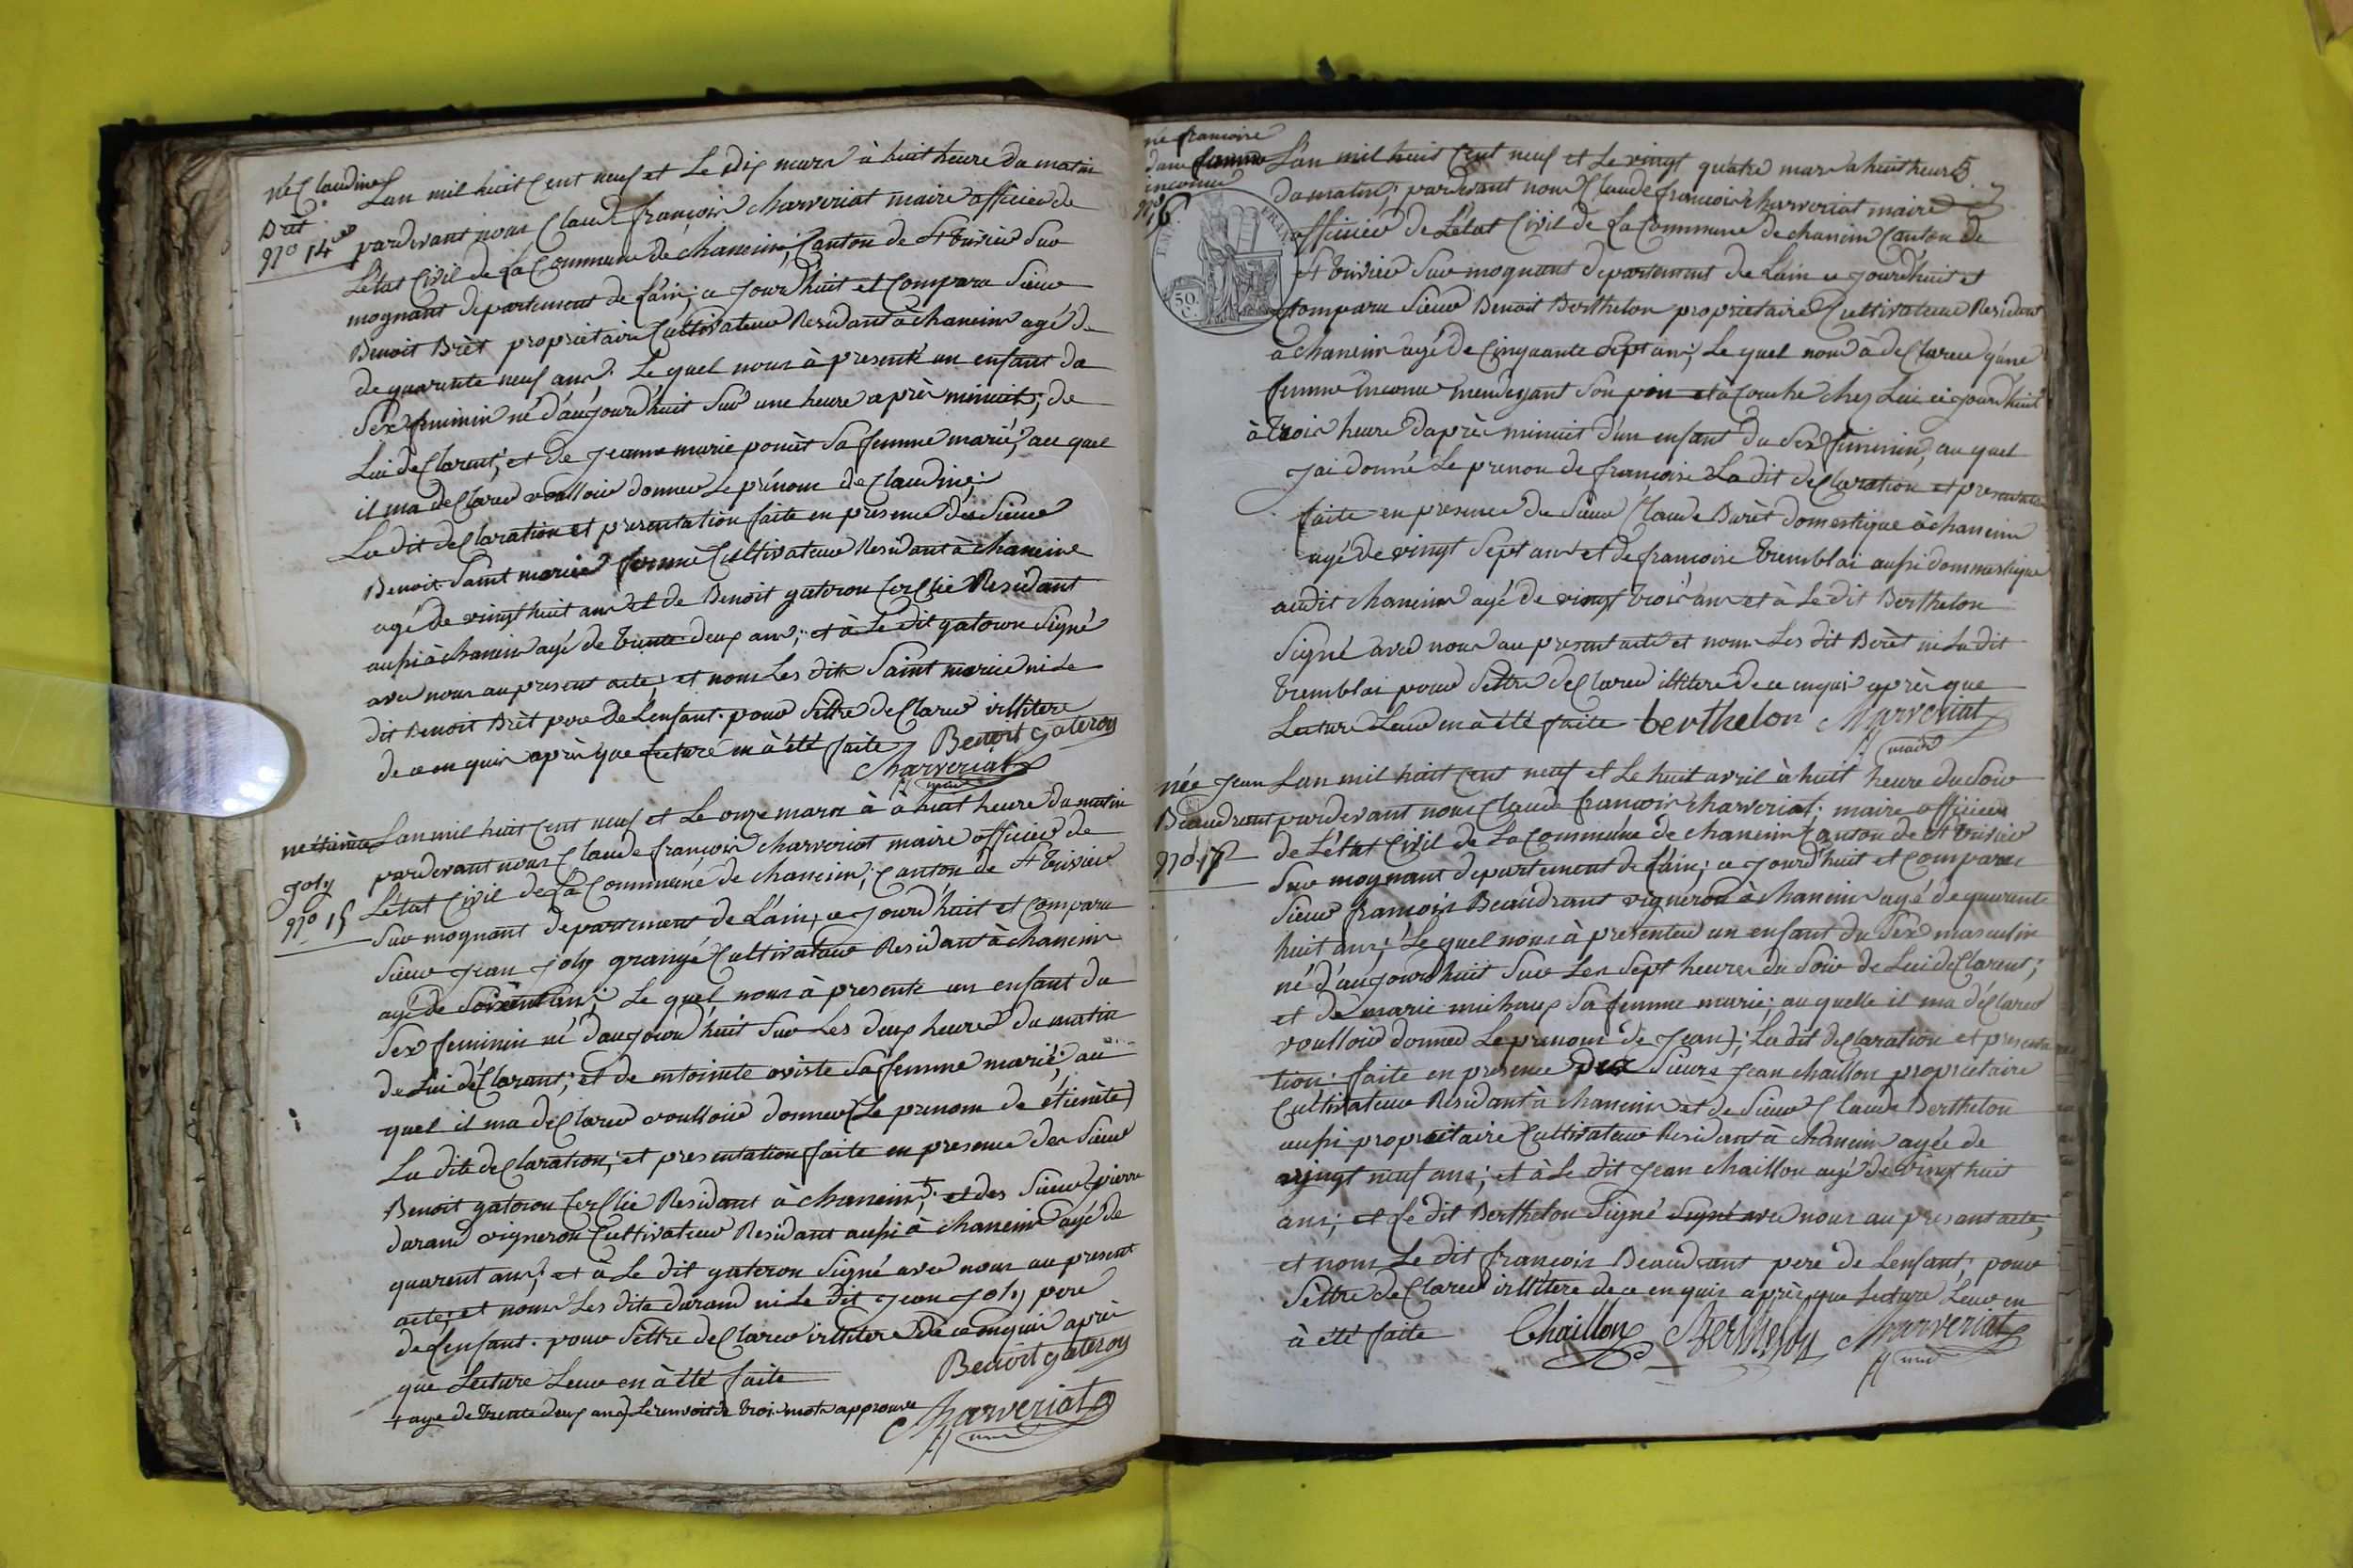 né Claudine
Brèt
N° 14
L'an mil huit Cent neuf et Le dix mars à huit heure du matin
pardevant nous Claude françois charveriat maire officier de
L'état Civil de La Commune de chanein; Canton de St trivier Sur
mognant departement de L'ain; ce jourd'huit et Comparu Sieur
Benoit Brèt proprietaire Cultivateur Residant à chanein agé de
de quarente neuf ans; Le quel nous à presenté un enfant du
Sex feminin né d'aujourd'huit Sur une heure après minuit; de
Lui deClarent; et de jeanne marie ponèt Sa femme marié; au quel
il ma deClarer voulloir donner Le prénom de Claudine;
La dit deClaration et presentation faite en présence des Sieur
Benoit Saint marie Cultivateur Residant à chaneine
agé de vingt huit ans et de Benoit gateron Residant
aussi à chanein agé de trente deux ans; et à Le dit gatoron Signé
avec nous au present acte; et nom Les dits Saint marie ni Le
dit Benoit Brèt pere de L'enfant pour Sèttre deClarer illitere
de ce enquis après que Lecture en à été faite Benoit gateron
Charveriat
maire
né étiènète
joly
N° 15
L'an mil huit Cent neuf et Le onze mars à à huit heure du matin
pardevant nous Claude françois charveriat maire officier de
L'état Civil de La Commune de chanein; Canton de St trivier
Sur mognant departement de L'ain; ce jourd'huit et Comparu
Sieur jean joly grangé Cultivateur Residant à chanein
agé de Soixente ans; Le quel nous à presenté un enfant du
Sex feminin né d'aujourd'huit Sur Les deux heures du matin
de Lui déClarant; et de entoinete oviste Sa femme marié; au
quel il ma déClarer voulloir donner (Le prenom de étienète)
La dite deClaration; et presentation faite en presence des Sieur
Benoit gatoron Residant à chanein +; et des Sieur pierre
durand vigneron Cultivateur Residant aussi à chanein agé de
quarent ans; et à Le dit gateron Signé avec nous au present
acte; et nom Les dits durand ni Le dit jean joly pere
de L'enfant. pour Sèttre deClarer illitere de ce enquis aprè
que Lecture Leur en à été faite Benoit gateron
+ agé de trente deux ans) Le renvoit de trois mots approuvé Charveriat
né francoise
dune femme
inconnue
N° 16
5
L'an mil huit Cent neuf et Le vingt quatre mars à huit heure
du matin; pardevant nous Claude francois charveriat maire
officier de L'état Civil de La Commune de chanein Canton de
St trivier Sur mognant departement de L'ain ce jourd'huit et
Comparu Sieur Benoit Berthelon proprietaire Cultivateur Residant
à chanein agé de Cinquante Sept ans; Le quel nous à deClarer q'une
femme inconu mendegant Son pin et à Couche chez Lui ce jourd'huit
à trois heure d'après minuit d'un enfant du Sex feminin, au quel
jai donné Le prenon de françoise La dit deClaration et presentation
faite en presence du Sieur Claude Burèt domestique à chanein
agé de vingt Sept ans et de francoise tremblai aussi dommestique
audit chanein agé de vingt trois ans et à Le dit Berthelon
Signé avec nous au present acte et nom Les dit Berèt ni La dit
tremblai pour Sèttre deClarer illitere de ce enquis après que
Lecture Leur en à été faite berthelon Charveriat
maire
née jean
Beaudrant
N° 17
L'an mil huit Cent neuf et Le huit avril à huit heure du Soir
pardevant nous Claude francois charveriat; maire officier
de L'état Civil de La Commune de chanein Canton de St trivier
Sur mognant departement de L'ain; ce jourd'huit et Comparu
Sieur francois Beaudrant vigneron à chanein agé de quarente
huit ans; Le quel nous à presenter un enfant du Sex masculin
né d'aujourd'huit Sur Les Sept heures du Soir de Lui deClarent;
et de marie michaux Sa femme marie; au quelle il ma déClarer
voulloir donner Le prenom de jean); La dit deClaration et presenta
tion; faite en presence des Sieurs jean chaillon proprietaire
Cultivateur Residant à chanein et de Sieur Claude Berthelon
aussi proprietaire Cultivateur Residant à chanein agée de
vingt neuf ans; et à Le dit jean chaillon agé de vingt huit
ans; et Le dit Berthelon Signé Signé avec nous au present acte;
et nom Le dit françois Beaudrant pere de L'enfant; pour
Sèttre deClarer illitere de ce enquis après que Lecture Leur en
à été faite Chaillon Berthelon Charveriat
maire